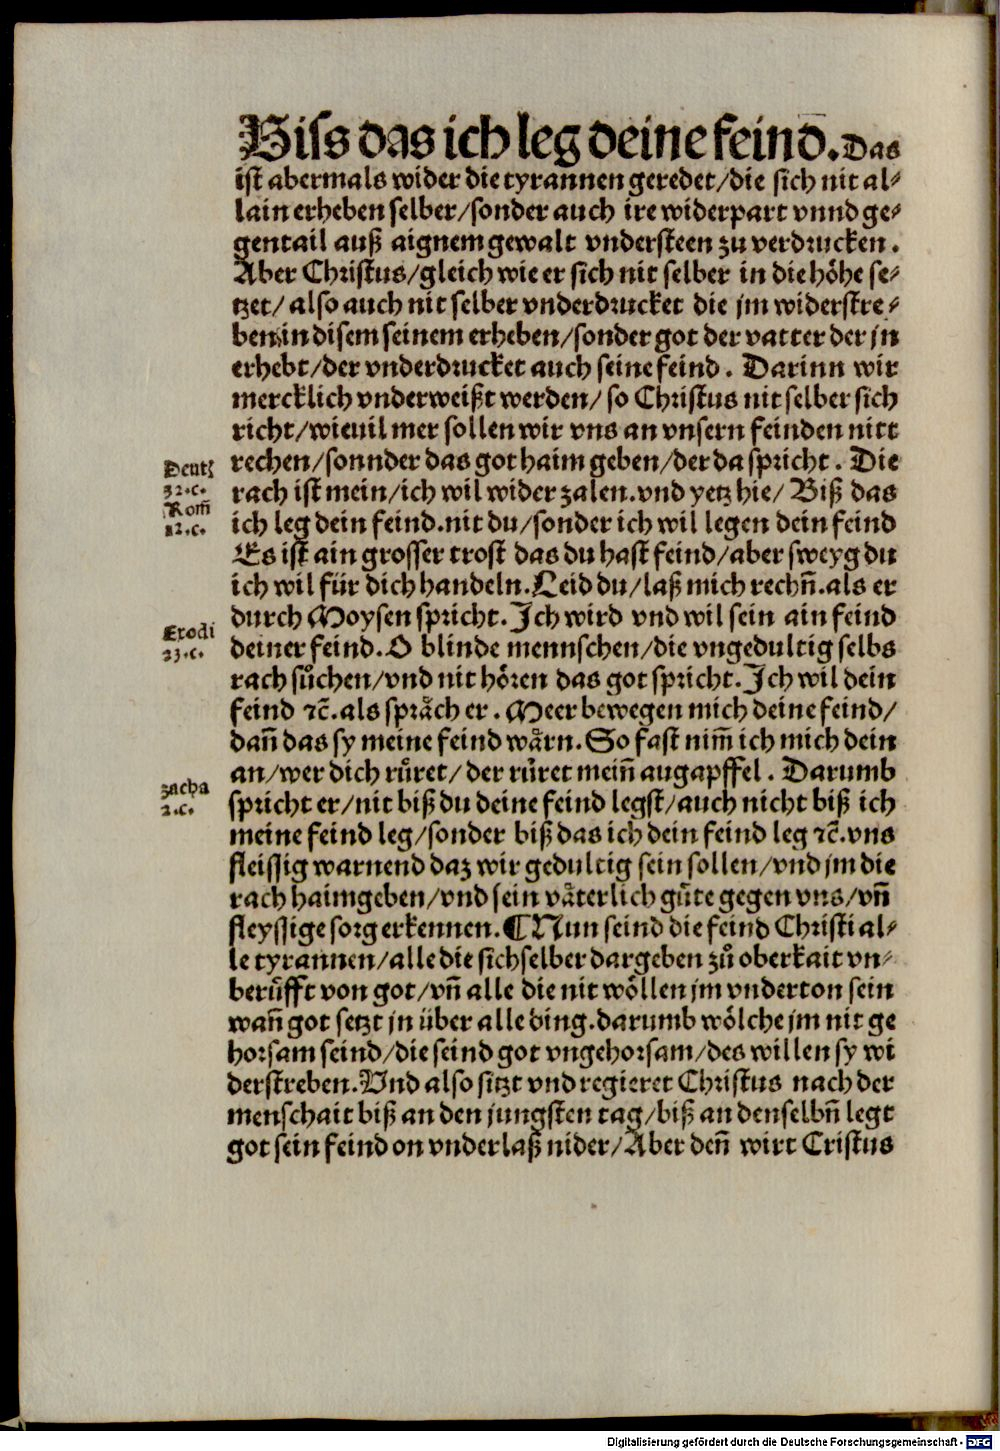 Biſs das ich leg deine feind. Das
iſt abermals wider die tyrannen geredet/die ſich nit al⸗
lain erheben ſelber/ſonder auch ire widerpart vnnd ge⸗
gentail auß aignem gewalt vnderſteen zu verdrucken.
Aber Chriſtus/gleich wie er ſich nit ſelber in die höhe ſe⸗
tzet/ alſo auch nit ſelber vnderdrucket die jm widerſtre⸗
ben in diſem ſeinem erheben/ſonder got der vatter der jn
erhebt/der vnderdrucket auch ſeine feind. Darinn wir
mercklich vnderweißt werden/ ſo Chriſtus nit ſelber ſich
richt/wieuil mer ſollen wir vns an vnſern feinden nitt
Deut̃
32.c.
Rom̃
12.c.
rechen/ſonnder das got haim geben/der da ſpricht. Die
rach iſt mein/ich wil wider zalen.vnd yetz hie/ Biß das
ich leg dein feind.nit du/ſonder ich wil legen dein feind
Es iſt ain groſſer troſt das du haſt feind/aber ſweyg du
ich wil für dich handeln.Leid du/laß mich rechn̄.als er
Exodi
23.c.
durch Moyſen ſpricht.Ich wird vnd wil ſein ain feind
deiner feind.O blinde mennſchen/die vngedultig ſelbs
rach ſůchen/vnd nit hören das got ſpricht.Ich wil dein
feind ⁊c̄.als ſpräch er. Meer bewegen mich deine feind/
dañ das ſy meine feind wärn.So faſt nim̄ ich mich dein
zacha
2.c.
an/wer dich růret/ der růret mein̄ augapffel. Darumb
ſpricht er/nit biß du deine feind legſt/auch nicht biß ich
meine feind leg/ſonder biß das ich dein feind leg ⁊c̄.vns
fleiſſig warnend daz wir gedultig ſein ſollen/vnd jm die
rach haimgeben/vnd ſein väterlich güte gegen vns/vn̄
fleyſſige ſorg erkennen.¶Nun ſeind die feind Chriſti al⸗
le tyrannen/alle die ſich ſelber dargeben zů oberkait vn⸗
berüfft von got/vn̄ alle die nit wöllen jm vnderton ſein
wan̄ got ſetzt jn über alle ding.darumb wölche jm nit ge
horſam ſeind/die ſeind got vngehorſam/des willen ſy wi
derſtreben.Vnd alſo ſitzt vnd regieret Chriſtus nach der
menſchait biß an den jungſten tag/biß an denſelbn̄ legt
got ſein feind on vnderlaß nider/Aber den̄ wirt Criſtus
Digitalisierung gefördert durch die Deutsche Forschungsgemeinschaft - DFG